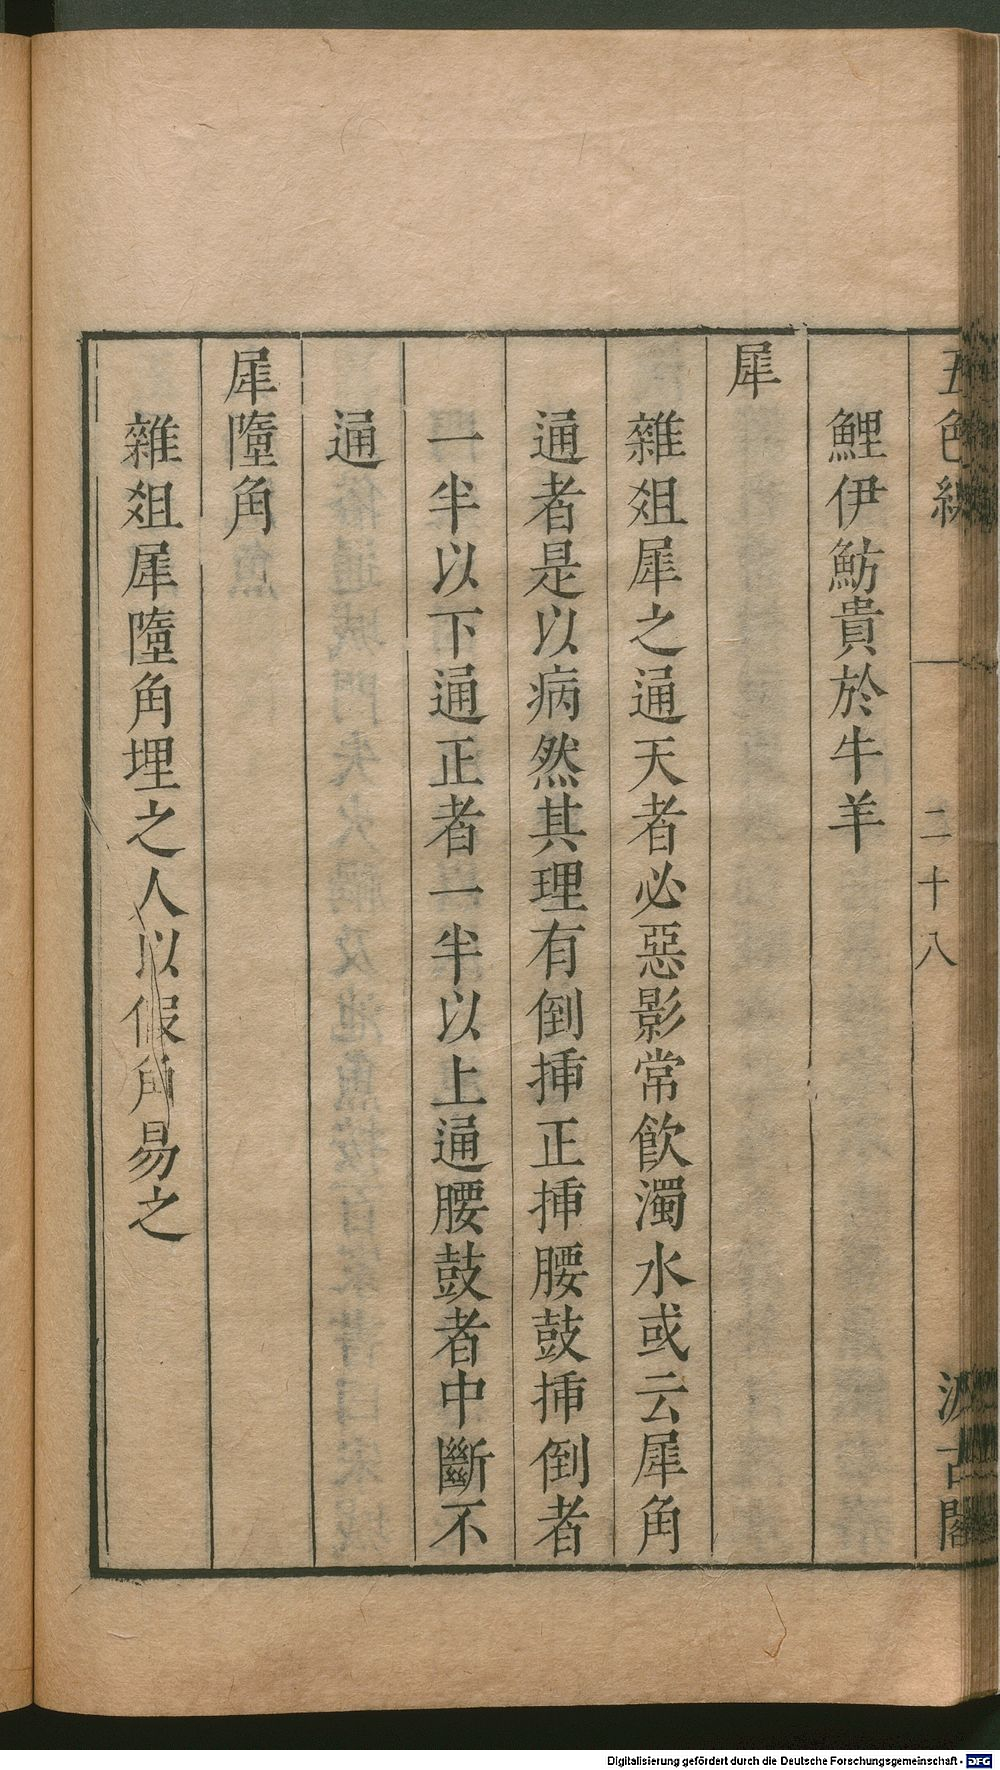 五色線 二十八 汲古閣
鯉伊魴貴於牛羊
犀
雜俎犀之通天者必惡影常飲濁水或云犀角
通者是以病然其理有倒揷正揷腰鼓揷倒者
一半以下通正者一半以上通腰鼓者中斷不
通
犀墮角
雜俎犀墮角埋之人以假角易之
Digitalisierung gefördert durch die Deutsche Forschungsgemeinschaft - DFG